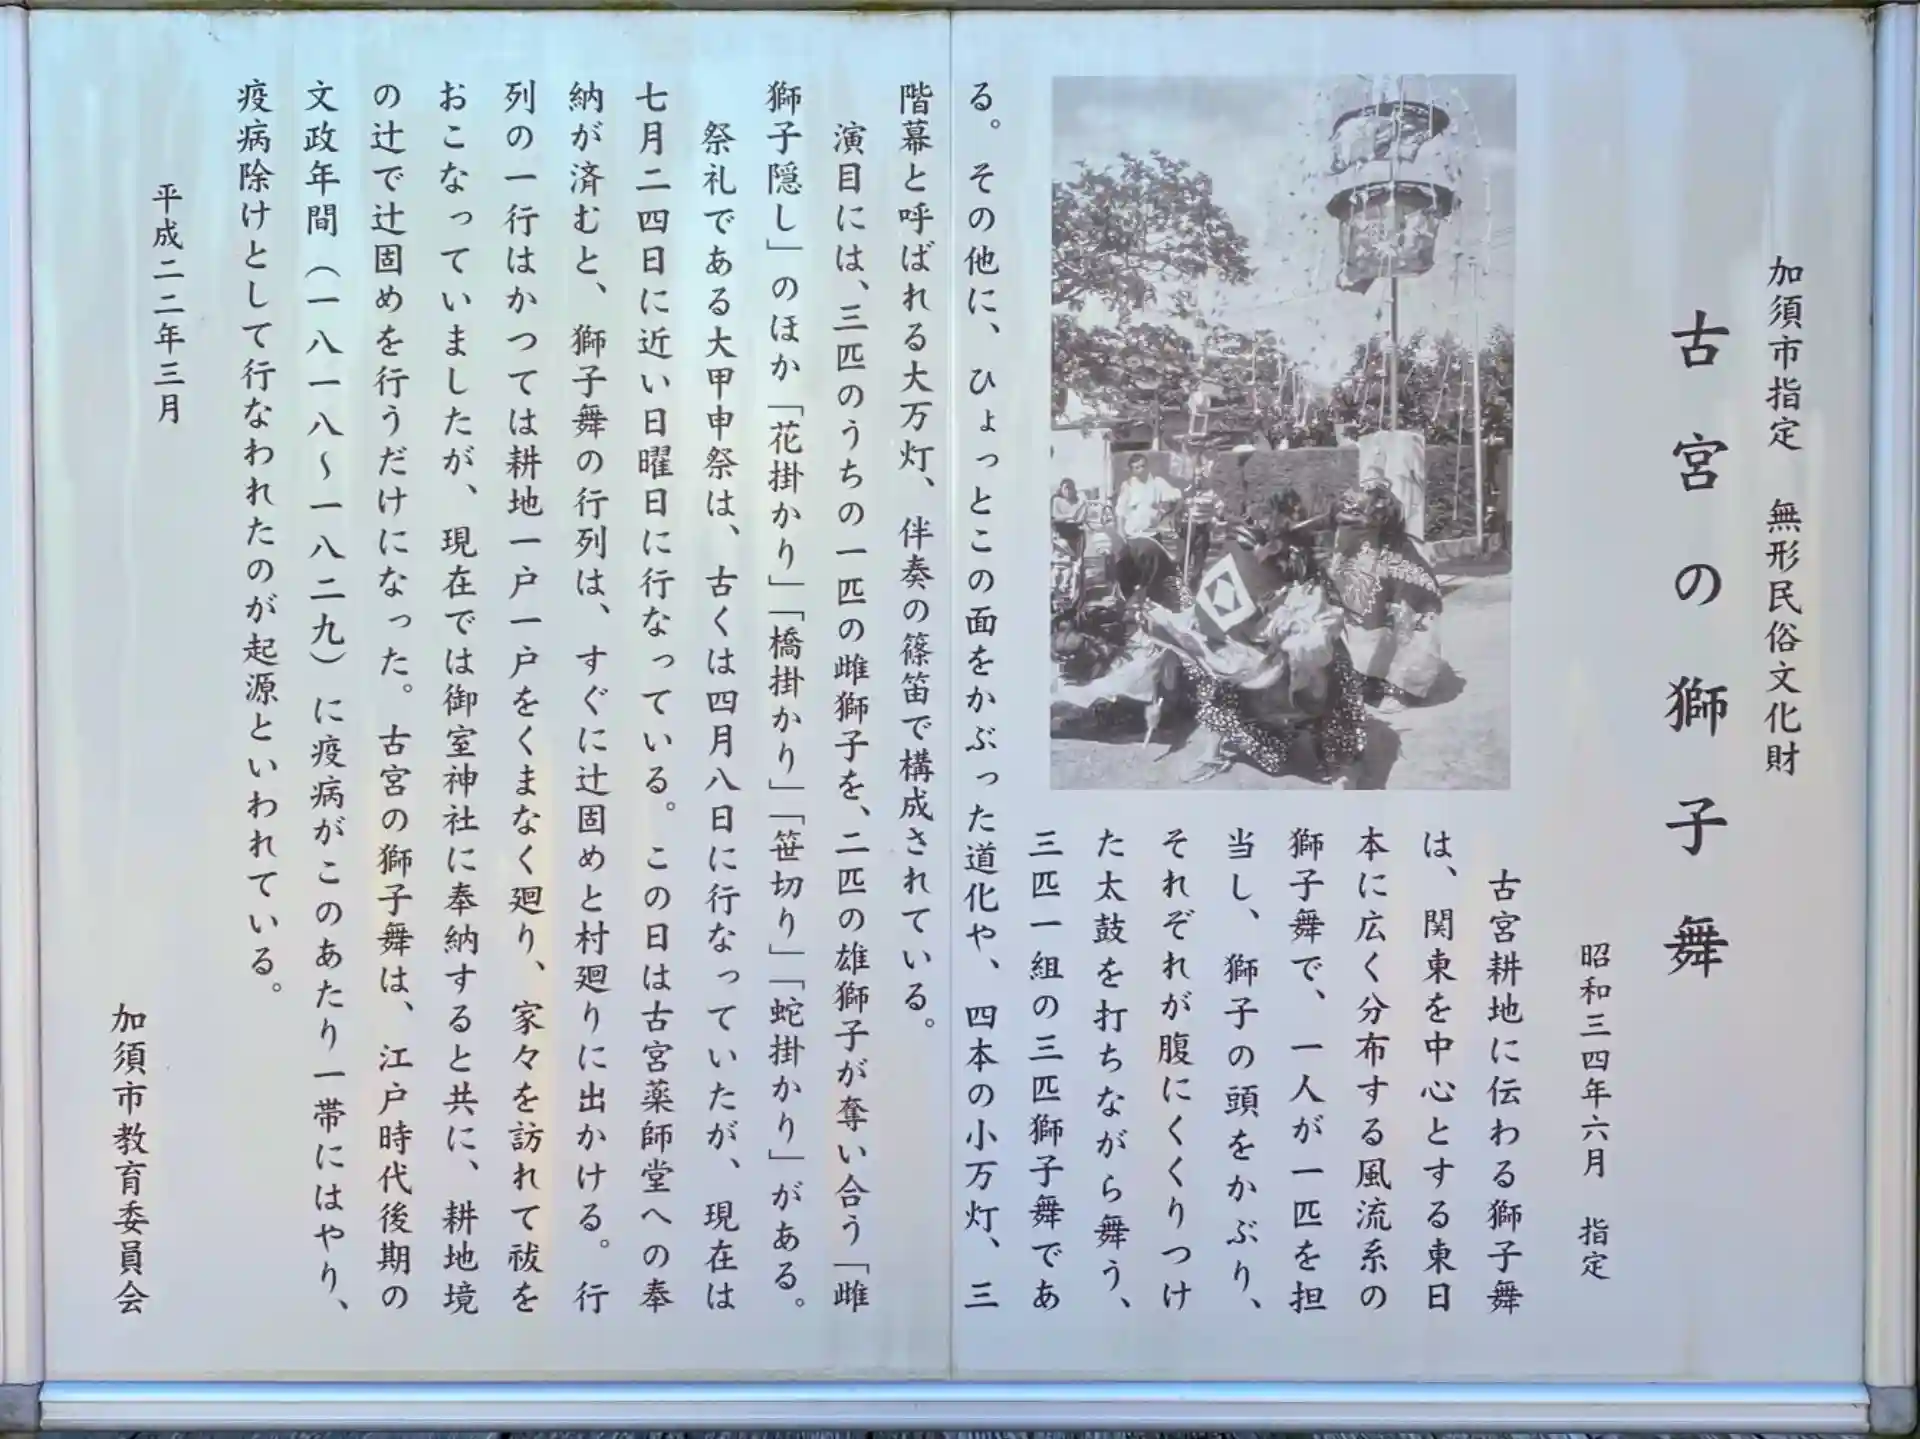 加須市指定　無形民俗文化財
古宮の獅子舞
昭和三四年六月　指定
古宮耕地に伝わる獅子舞
は、関東を中心とする東日
本に広く分布する風流系の
獅子舞で、一人が一匹を担
当し、獅子の頭をかぶり、
それぞれが腹にくくりつけ
た太鼓を打ちながら舞う、
三匹一組の三匹獅子舞であ
る。その他に、ひょっとこの面をかぶった道化や、四本の小万灯、三
階幕と呼ばれる大万灯、伴奏の篠笛で構成されている。
演目には、三匹のうちの一匹の雌獅子を、二匹の雄獅子が奪い合う「雌
獅子隠し」のほか「花掛かり」「橋掛かり」「笹切り」「蛇掛かり」がある。
祭礼である大甲申祭は、古くは四月八日に行なっていたが、現在は
七月二四日に近い日曜日に行なっている。この日は古宮薬師堂への奉
納が済むと、獅子舞の行列は、すぐに辻固めと村廻りに出かける。行
列の一行はかつては耕地一戸一戸をくまなく廻り、家々を訪れて祓を
おこなっていましたが、現在では御室神社に奉納すると共に、耕地境
の辻で辻固めを行うだけになった。古宮の獅子舞は、江戸時代後期の
文政年間（一八一八～一八二九）に疫病がこのあたり一帯にはやり、
疫病除けとして行なわれたのが起源といわれている。
平成二二年三月
加須市教育委員会